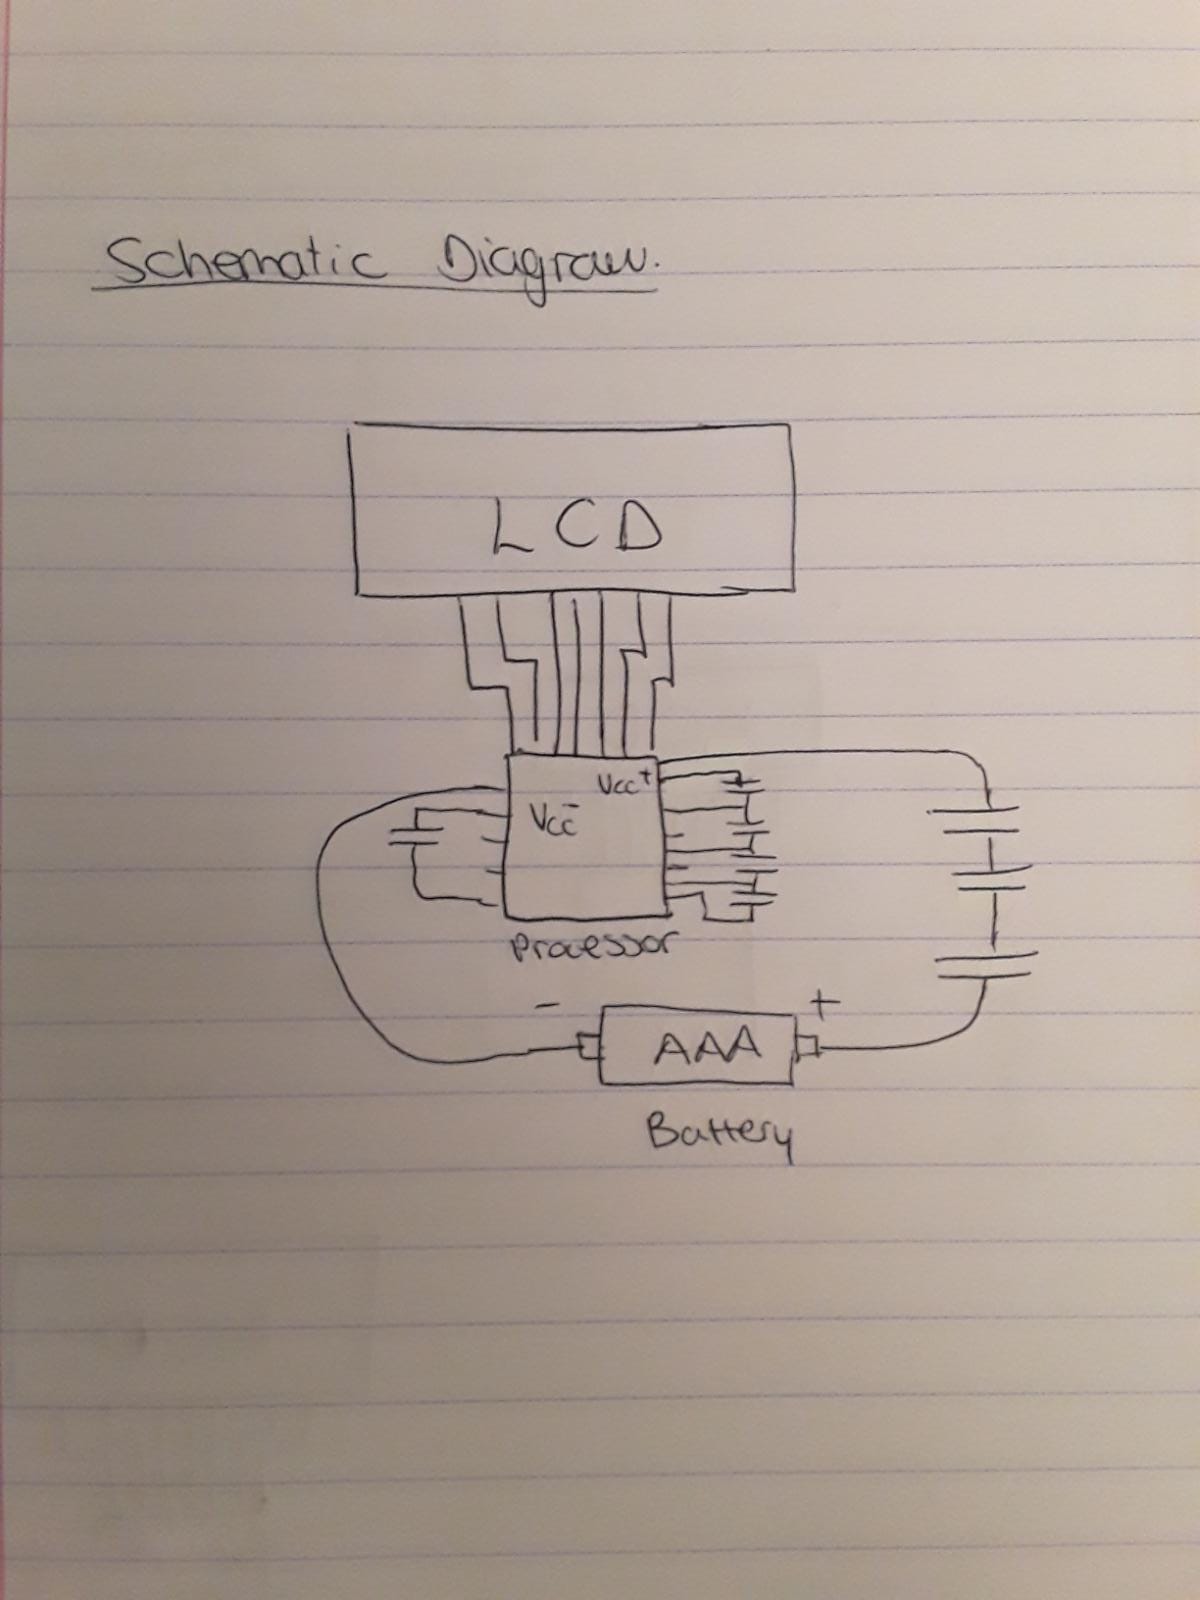 Schematic Diagram.
LCD
Vcc+
Vcc-
Processor
- +
AAA
Battery